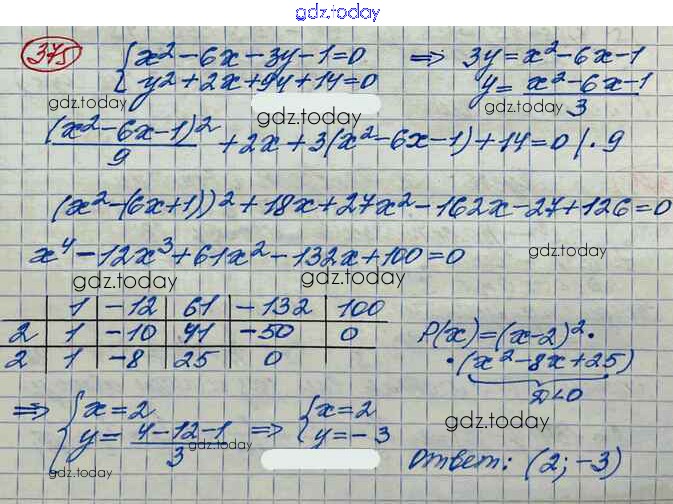 gdz.today
375
{ x² - 6x - 3y - 1 = 0 ⇒ 3y = x² - 6x - 1
{ y² + 2x + 9y + 14 = 0 y = (x² - 6x - 1)/3
gdz.today gdz.today gdz.today
(x² - 6x - 1)²/9 + 2x + 3(x² - 6x - 1) + 14 = 0 | · 9
(x² - (6x + 1))² + 18x + 27x² - 162x - 27 + 126 = 0
x⁴ - 12x³ + 61x² - 132x + 100 = 0
gdz.today gdz.today gdz.today
1 -12 61 -132 100
2 1 -10 41 -50 0
2 1 -8 25 0
P(x) = (x-2)² ·
· (x² - 8x + 25)
D<0
⇒ { x = 2 ⇒ { x = 2
{ y = (4-12-1)/3 { y = -3
gdz.today gdz.today gdz.today
Ответ: (2; -3)